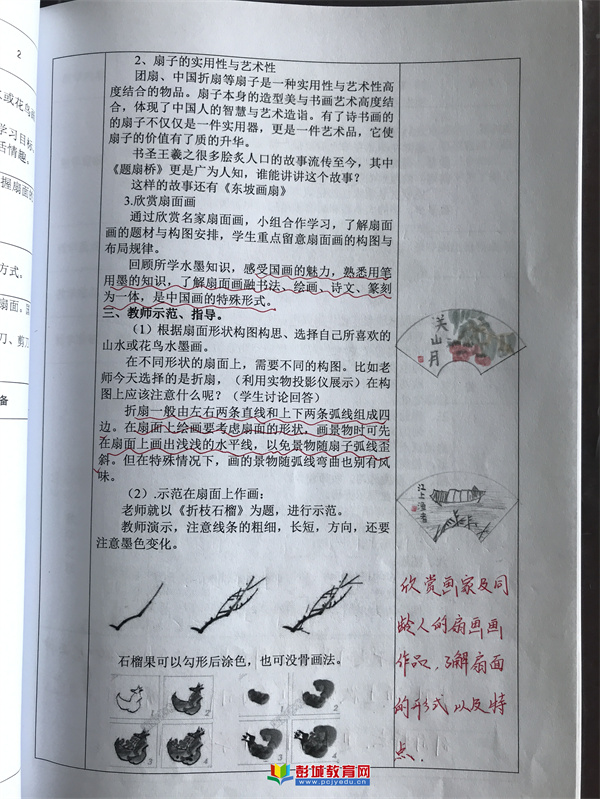 2
或花鸟画
学习目标,
活情趣。
握扇面的
方式。
扇面。
刀、剪刀
备
2、扇子的实用性与艺术性
团扇、中国折扇等扇子是一种实用性与艺术性高
度结合的物品。扇子本身的造型美与书画艺术高度结
合，体现了中国人的智慧与艺术造诣。有了诗书画的
的扇子不仅仅是一件实用器，更是一件艺术品，它使
扇子的价值有了质的升华。
书圣王羲之很多脍炙人口的故事流传至今，其中
《题扇桥》更是广为人知，谁能讲讲这个故事？
这样的故事还有《东坡画扇》
3.欣赏扇面画
通过欣赏名家扇面画，小组合作学习，了解扇面
画的题材与构图安排，学生重点留意扇面画的构图与
布局规律。
回顾所学水墨知识，感受国画的魅力，熟悉用笔
用墨的知识，了解扇面画融书法、绘画、诗文、篆刻
为一体，是中国画的特殊形式。
三、教师示范、指导。
（1）根据扇面形状构图构思、选择自己所喜欢的
山水或花鸟水墨画。
在不同形状的扇面上，需要不同的构图。比如老
师今天选择的是折扇，（利用实物投影仪展示）在构
图上应该注意什么呢？（学生讨论回答）
折扇一般由左右两条直线和上下两条弧线组成四
边。在扇面上绘画要考虑扇面的形状，画景物时可先
在扇面上画出浅浅的水平线，以免景物随扇子弧线歪
斜。但在特殊情况下，画的景物随弧线弯曲也别有风
味。
（2）.示范在扇面上作画：
老师就以《折枝石榴》为题，进行示范。
教师演示，注意线条的粗细，长短，方向，还要
注意墨色变化。
石榴果可以勾形后涂色，也可没骨画法。
2
3
4
2
3
4
关山月
江上渔者
欣赏画家及同
龄人的扇画画
作品，了解扇面
的形式以及特
点.
彭城教育网
www.pcjyedu.com